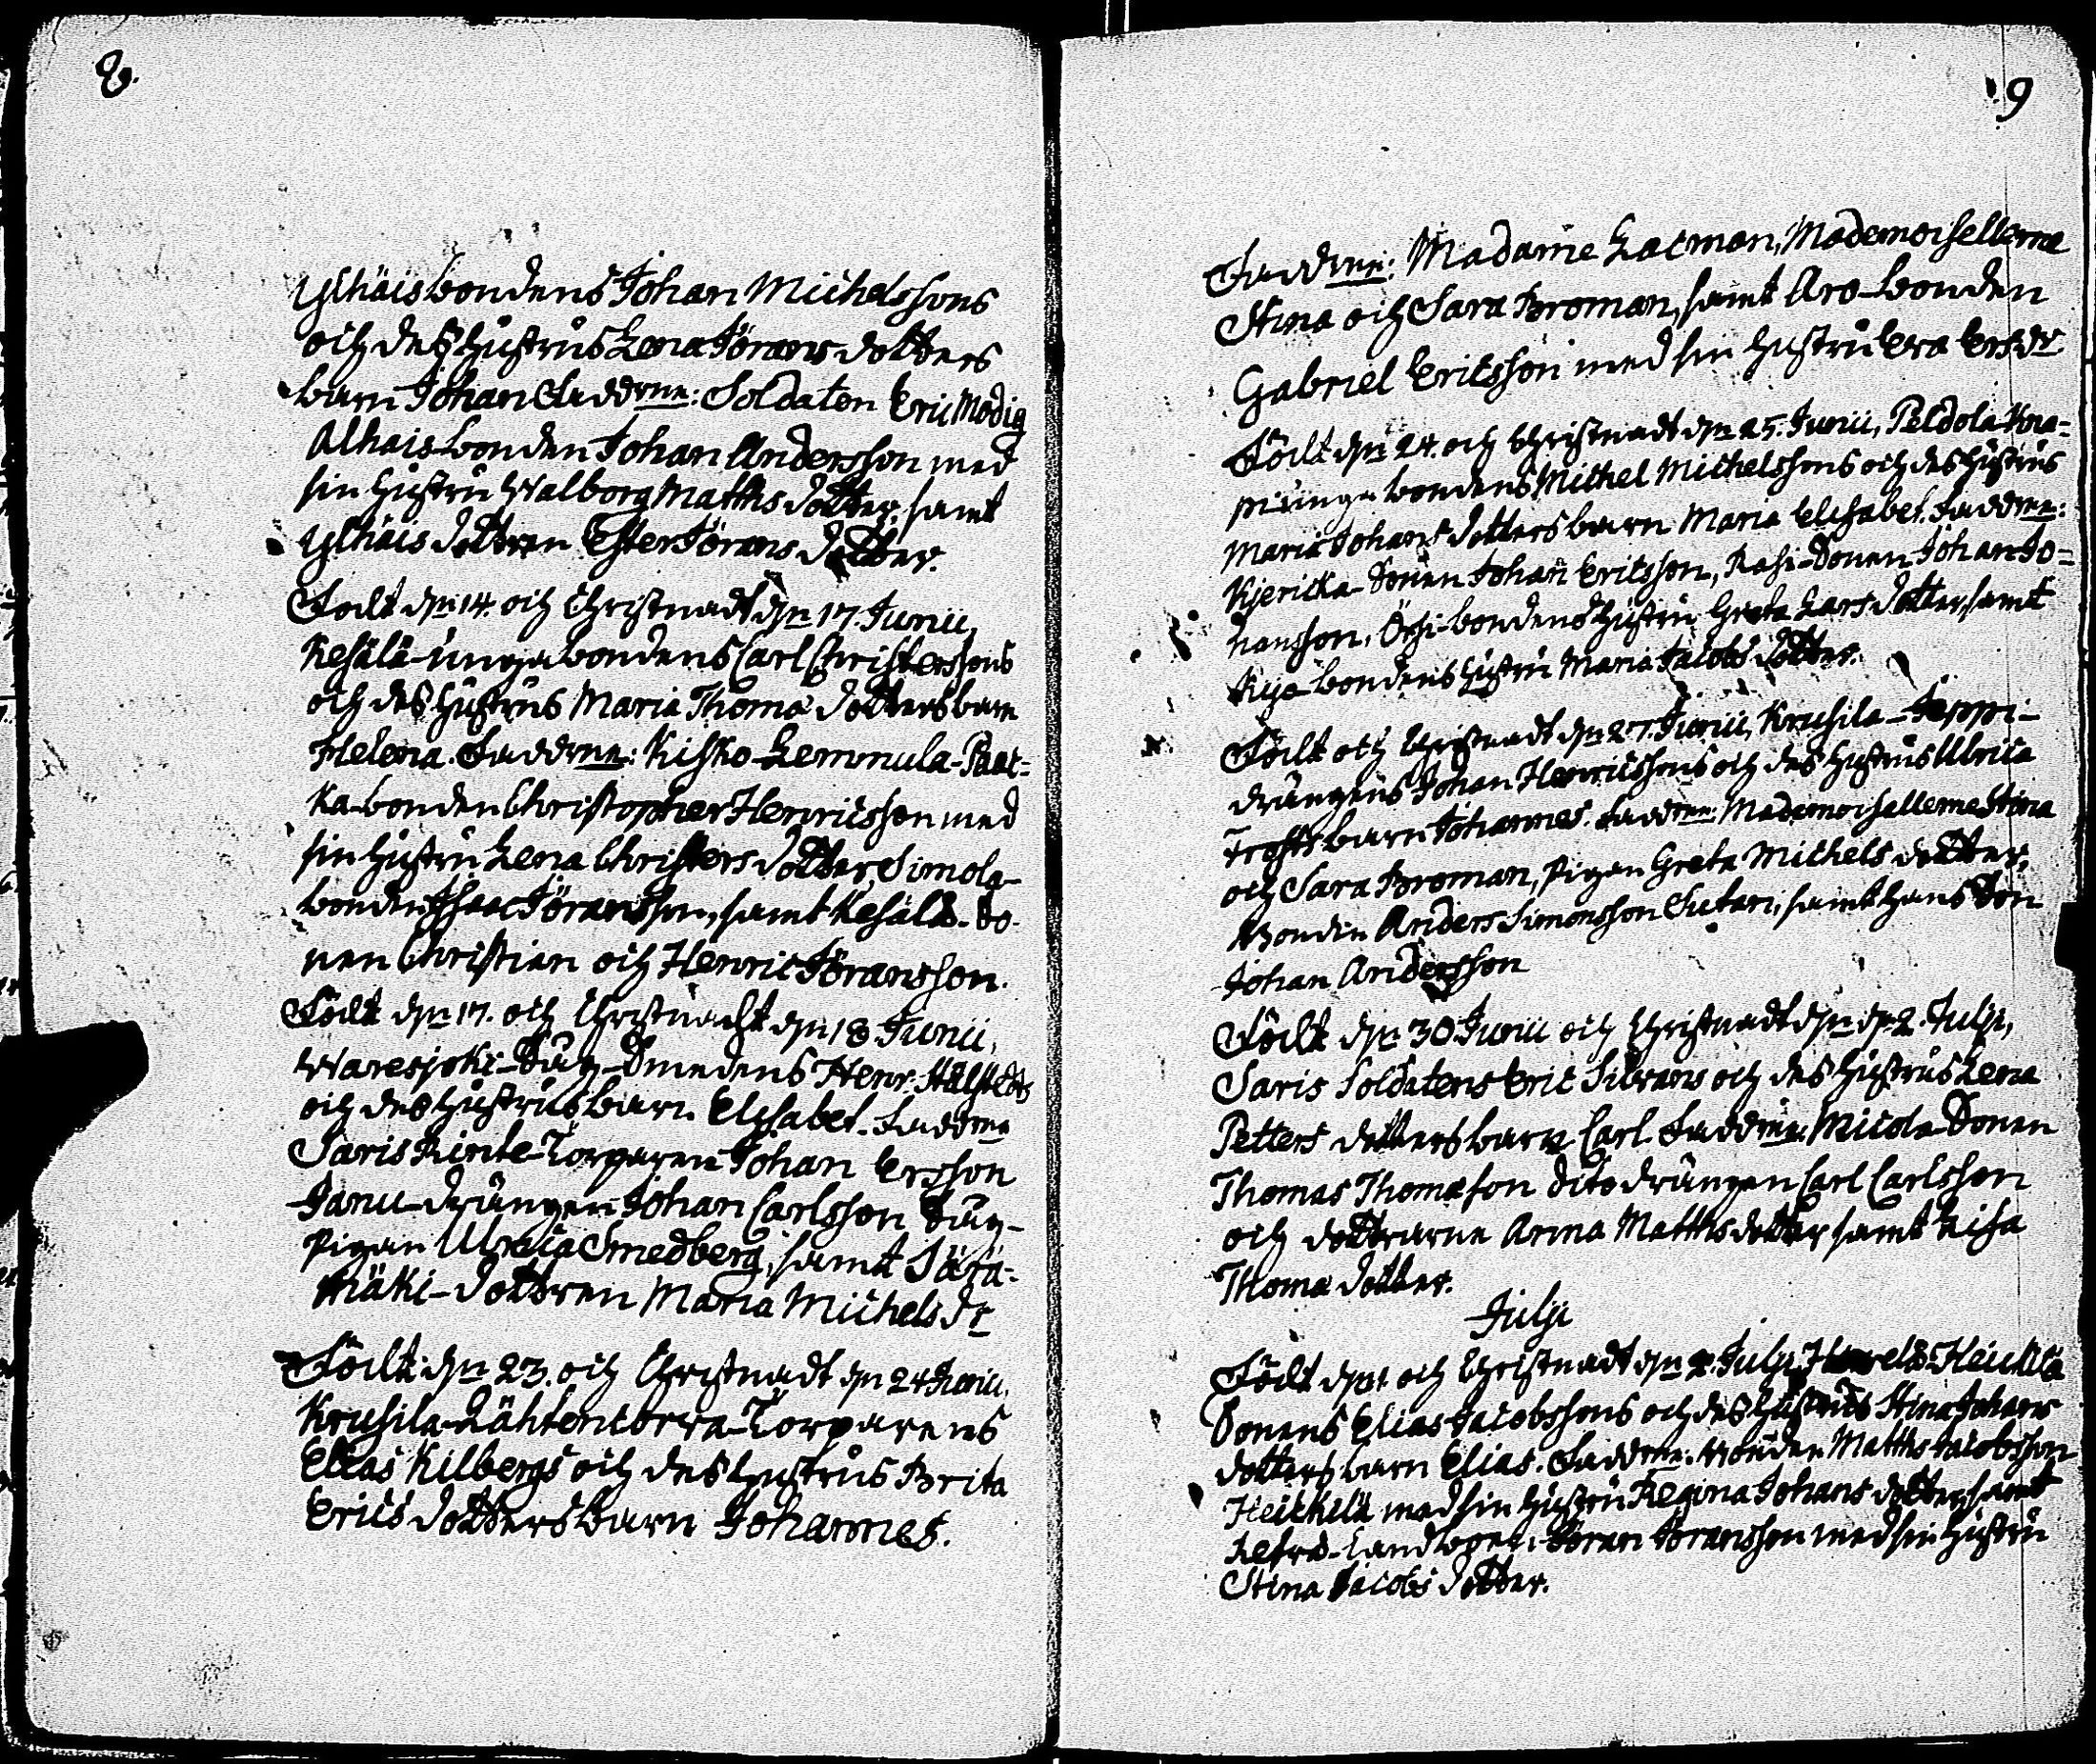 8.
Ylhäis bondens Johan Michelssons
och des hustrus Lena Jörans dotters
barn Johan Faddrne: Soldaten Eric Modig
Alhais bonden Johan Andersson med
sin hustru Walborg Matths dotter, samt
Ylhäis dottren Ester Jörans dotter.
Födt dn 14. och Christnadt dn 17. Junii,
Kesälä-unga bondens Carl Christerssons
och des hustrus Maria Thoma dotters barn
Helena. Faddrne: Kisko-Lemmula-Paat-
ka-bonden Christopher Henricsson med
sin hustru Lena Christers dotter, Simola-
bonden Isaac Jöransson, samt Kesälä-So-
nen Christian och Henric Jöransson.
Födt dn 17. och Christnadt dn 18 Junii,
Waresjoki-Såg-Smedens Henr. Stålstedts
och des hustrus barn Elisabet. Faddrne
Saris Rinte-Torparen Johan Ersson
Janu-drängen Johan Carlsson Såg-
Pigan Ulrica Smedberg, samt Sära-
mäki-dottren Maria Michels dr
Födt dn 23. och Christnadt dn 24 Junii,
Krusila-Lähtentorwa-Torparens
Elias Kilbergs och des hustrus Brita
Erics dotters barn Johannes.
9
Faddrne: Madame Lacman, Mademoisellerne
Stina och Sara Broman, samt Aro-bonden
Gabriel Ericsson med sin hustru Eva Ersdr
Födt dn 24. och Christnadt dn 25. Junii, Peldola-Kna-
pi unga bondens Michel Michelssons och des hustrus
Maria Johans dotters barn Maria Elisabet. Faddrne:
Kjericka-Sonen Johan Ericsson, Rasi-Sonen Johan Jo-
hansson, Öysi-bondens hustru Greta Lars dotter, samt
Kyo-bondens hustru Maria Jacobs dotter.
Födt och Christnadt dn 27. Junii, Krusila-Jeppi-
drängens Johan Henricssons och des hustrus Ulrica
Trosts barn Johannes. Faddrne: Mademoisellerne Stina
och Sara Broman, Pigan Greta Michels dotter,
Bonden Anders Simonsson Sutari, samt hans Son
Johan Andersson
Födt dn 30 Junii och Christnadt dn dn 2. Julji,
Saris Soldatens Eric Silvans och des hustrus Lena
Petters dotters barn Carl. Faddrne: Micola-Sonen
Thomas Thomason dito drängen Carl Carlsson
och dottrarne Anna Matths dotter samt Lisa
Thoma dotter.
Julji
Födt dn 1. och Christnadt dn 2. Julji, Heickilä
Sonens Elias Jacobssons och des hustrus Stina Johans
dotters barn Elias. Faddrne: Bonden Matths Jacobsson
Heickilä med sin hustru Regina Johans dotter, samt
Jöran Jöransson med sin hustru
Stina Jacobs dotter.